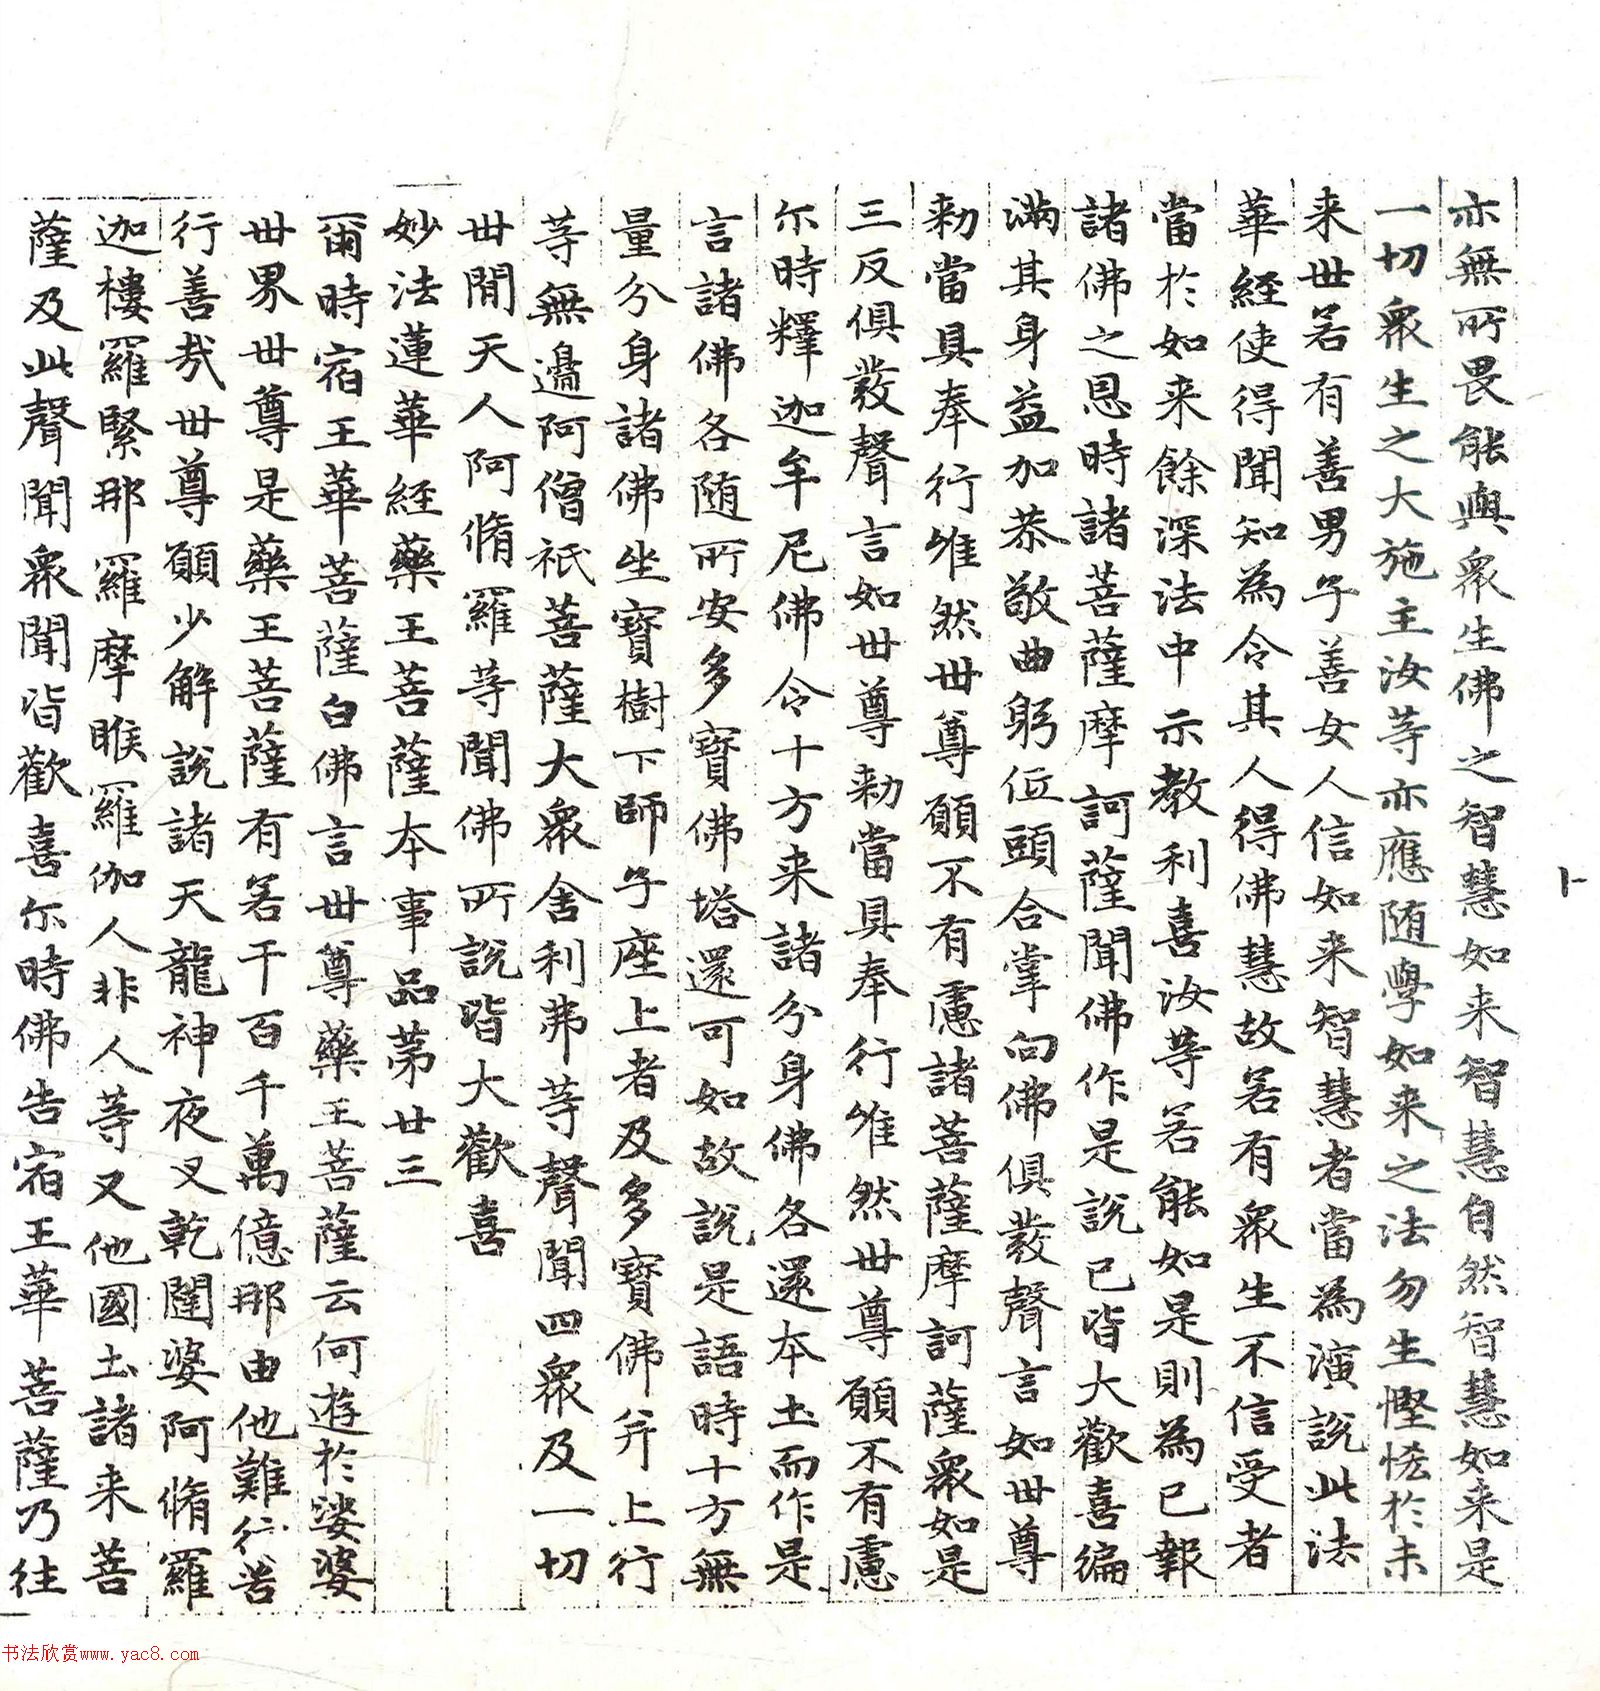 亦無所畏能與衆生佛之智慧如来智慧自然智慧如来是
一切衆生之大施主汝等亦應随學如来之法勿生慳悋於未
来世若有善男子善女人信如来智慧者當為演說此法
華經使得聞知為令其人得佛慧故若有衆生不信受者
當於如来餘深法中示教利喜汝等若能如是則為已報
諸佛之恩時諸菩薩摩訶薩聞佛作是說已皆大歡喜遍
滿其身益加恭敬曲躬伍頭合掌向佛俱發聲言如世尊
勑當具奉行唯然世尊願不有慮諸菩薩摩訶薩衆如是
三反俱發聲言如世尊勑當具奉行唯然世尊願不有慮
尒時釋迦牟尼佛令十方来諸分身佛各還本土而作是
言諸佛各随所安多寶佛塔還可如故說是語時十方無
量分身諸佛坐寶樹下師子座上者及多寶佛并上行
等無邊阿僧祇菩薩大衆舍利弗等聲聞四衆及一切
世間天人阿脩羅等聞佛所說皆大歡喜
妙法蓮華經藥王菩薩本事品苐廿三
爾時宿王華菩薩白佛言世尊藥王菩薩云何遊於娑婆
世界世尊是藥王菩薩有若干百千萬億那由他難行苦
行善哉世尊願少解說諸天龍神夜叉乾闥婆阿脩羅
迦樓羅緊那羅摩睺羅伽人非人等又他國土諸来菩
薩及此聲聞衆聞皆歡喜尒時佛告宿王華菩薩乃往
卜
书法欣赏www.yac8.com